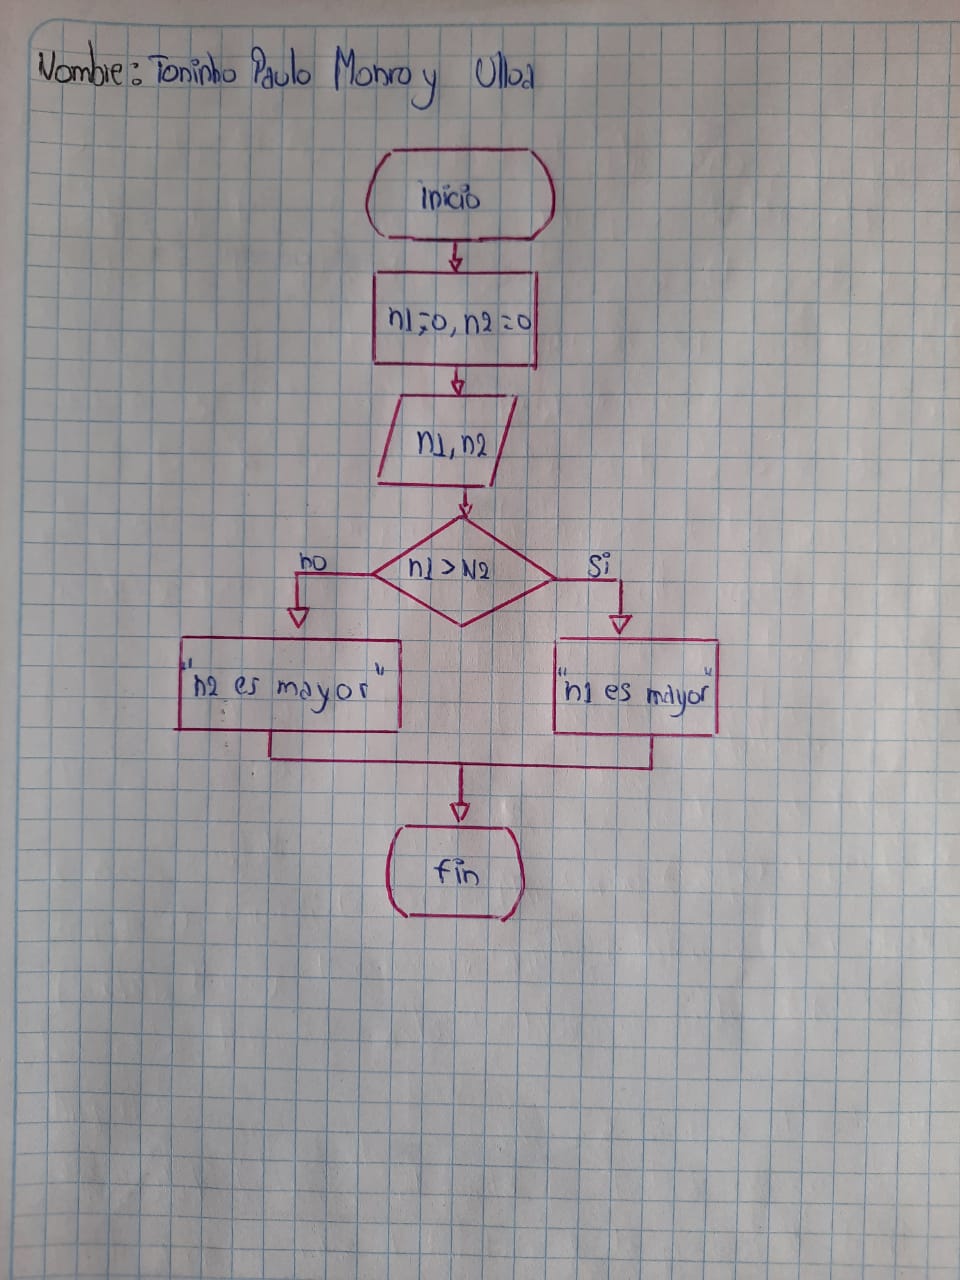 Nombre: Toninho Paulo Monroy Ulloa
inicio
n1=0, n2=0
n1, n2
n1 > N2
no
Si
"n2 es mayor"
"n1 es mayor"
fin